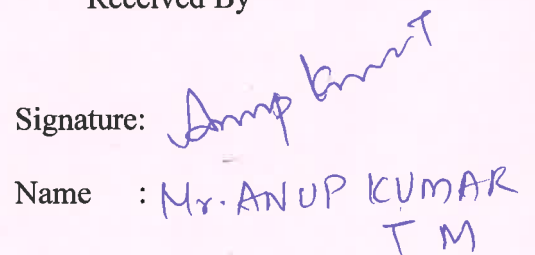 Received By
Signature: Anup Kumar T
Name : Mr. ANUP KUMAR
T M